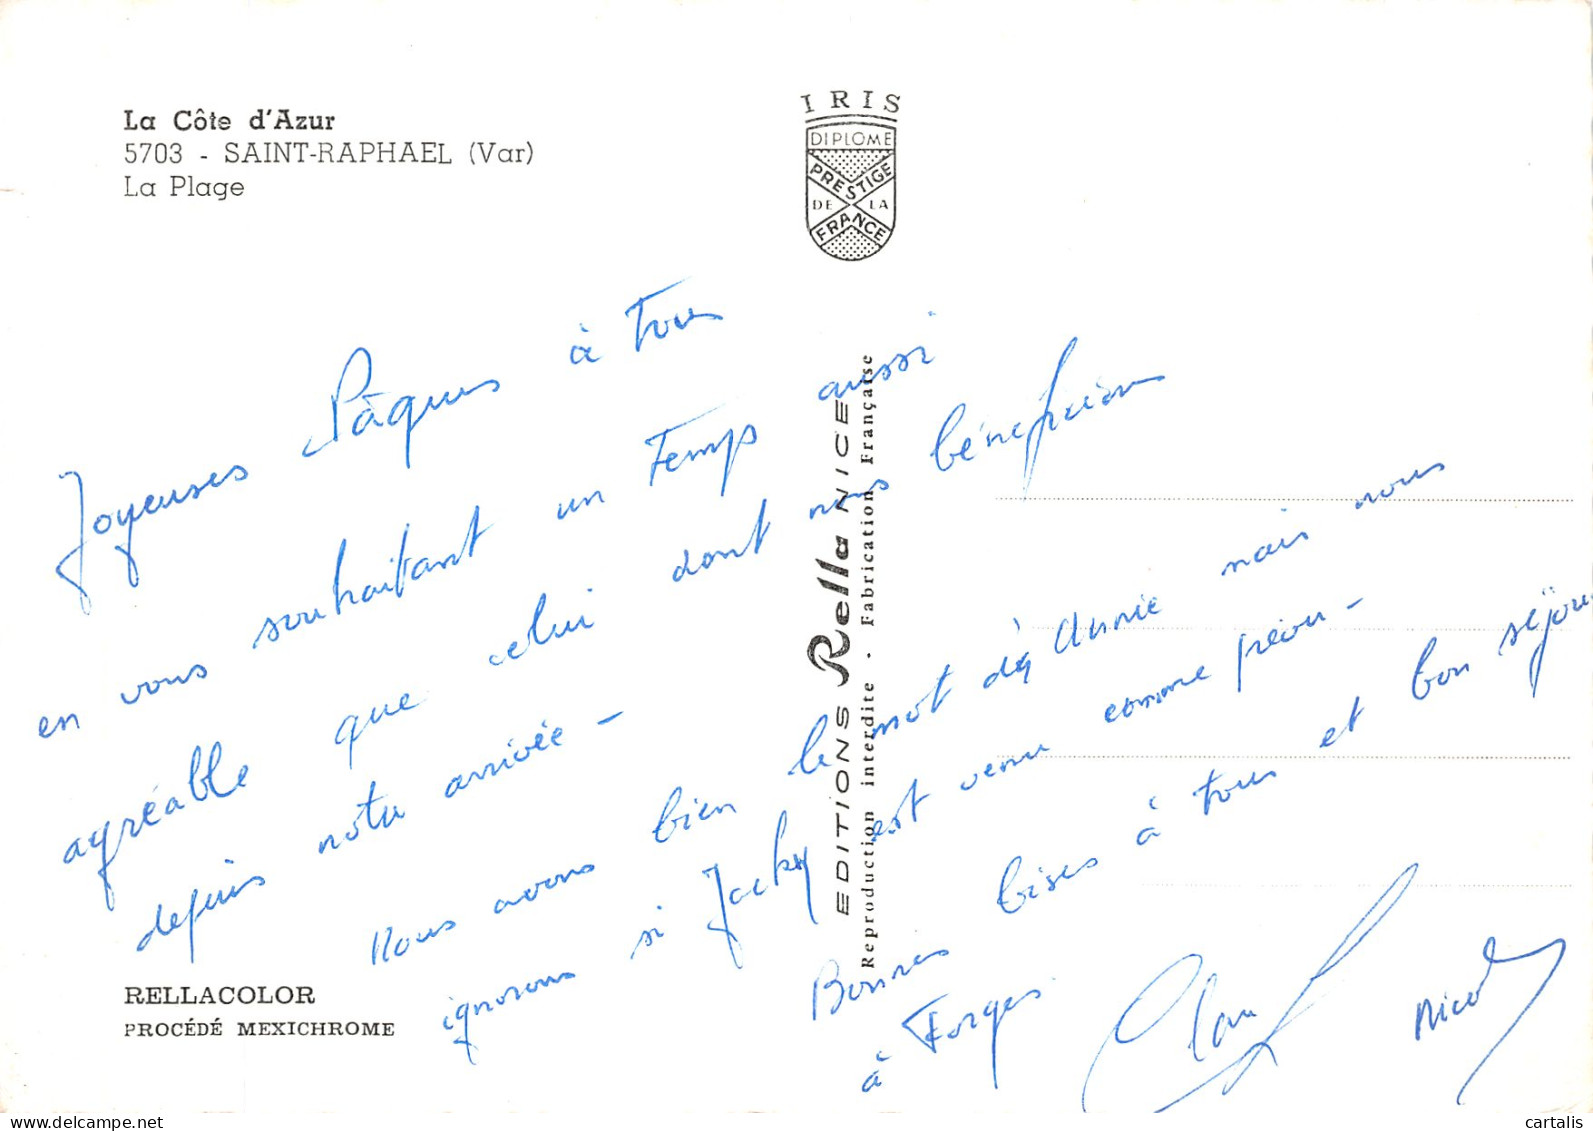 La Côte d'Azur
5703 - SAINT-RAPHAEL (Var)
La Plage
IRIS
DIPLOME
PRESTIGE
DE LA
FRANCE
Joyeuses Pâques à Tous
en vous souhaitant un Temps aussi
agréable que celui dont nous bénéficions
depuis notre arrivée -
Nous avons bien le mot d' Annie mais nous
ignorons si Jacky est venu comme prévu -
Bonnes bises à tous et bon séjour
à Forges
Nicole
EDITIONS Rella NICE
Reproduction interdite . Fabrication Française
RELLACOLOR
PROCÉDÉ MEXICHROME
delcampe.net
cartalis